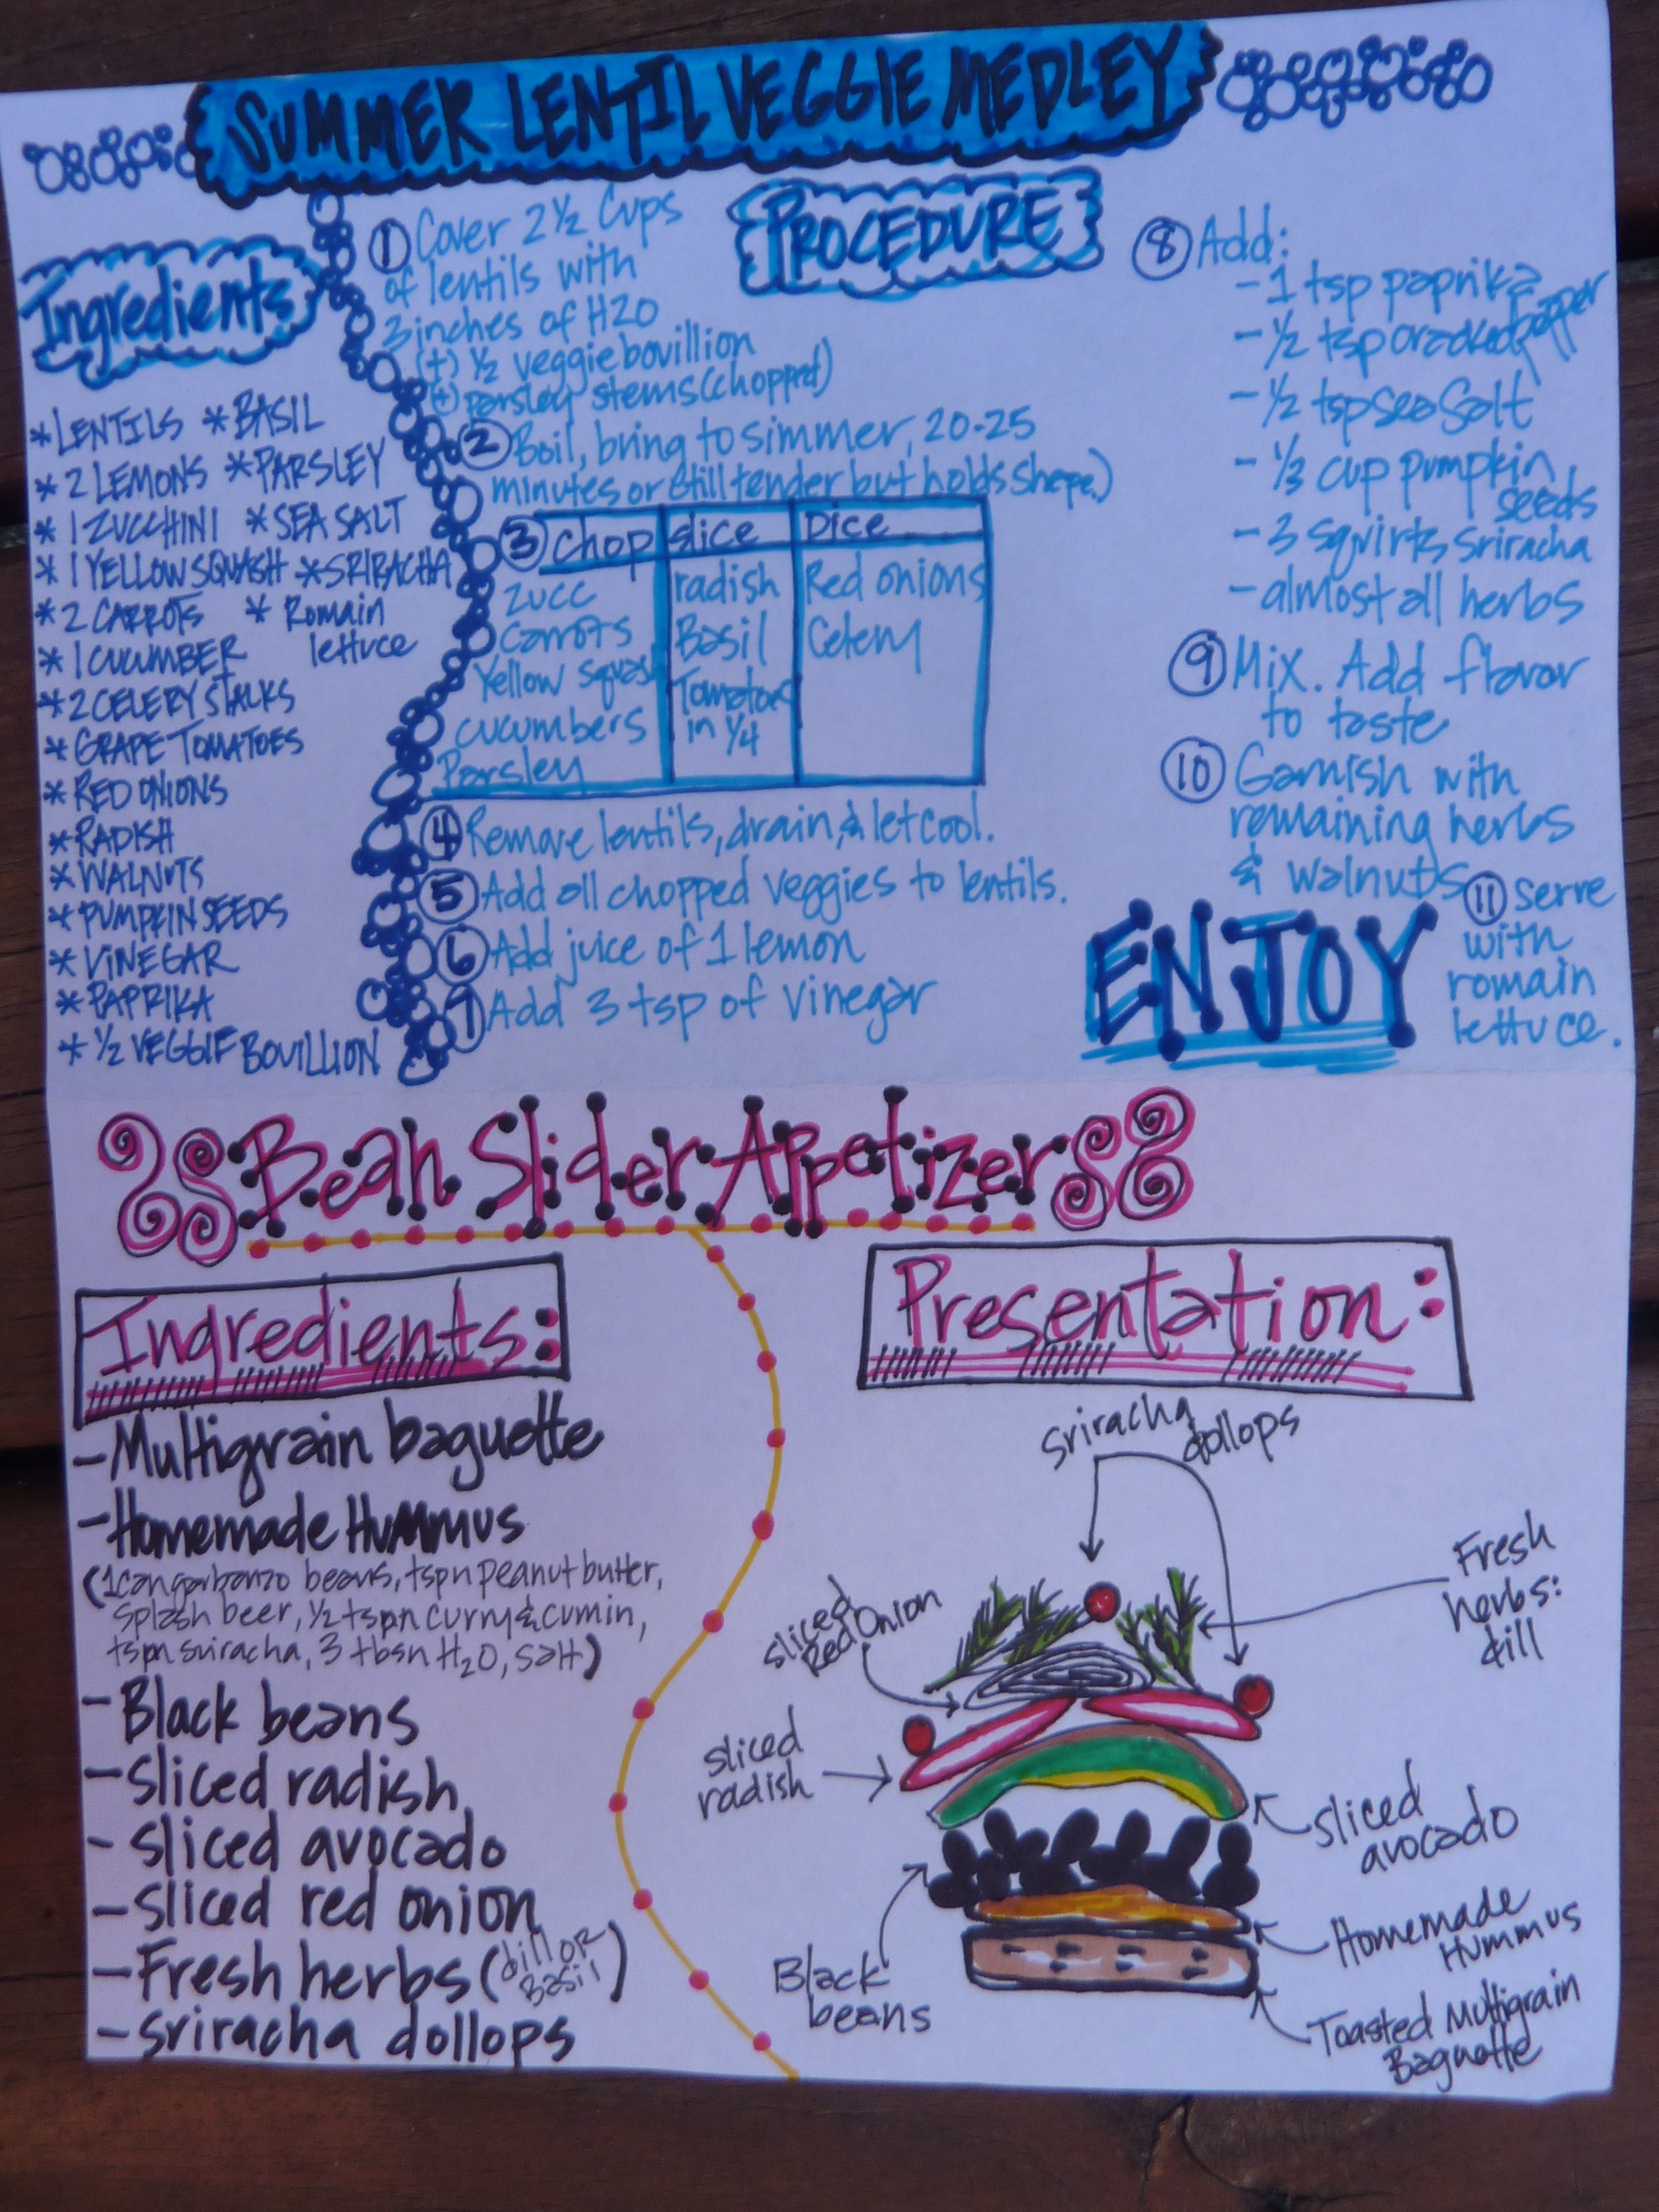 SUMMER LENTIL VEGGIE MEDLEY
Ingredients
*LENTILS *BASIL
*2 LEMONS *PARSLEY
*1 ZUCCHINI *SEA SALT
*1 YELLOW SQUASH *SRIRACHA
*2 CARROTS *Romain
lettuce
*1 CUCUMBER
*2 CELERY STALKS
*GRAPE TOMATOES
*RED ONIONS
*RADISH
*WALNUTS
*PUMPKIN SEEDS
*VINEGAR
*PAPRIKA
*½ VEGGIE BOUILLION
PROCEDURE
① Cover 2½ Cups
of lentils with
3 inches of H2O
(+) ½ veggie bouillion
(+) parsley stems (chopped)
② Boil, bring to simmer, 20-25
minutes or (still tender but holds shape.)
③ Chop slice Dice
zucc radish Red onions
carrots Basil Celery
Yellow squash Tomatoes
cucumbers in ¼
Parsley
④ Remove lentils, drain, & let cool.
⑤ Add all chopped veggies to lentils.
⑥ Add juice of 1 lemon
⑦ Add 3 tsp of vinegar
⑧ Add:
-1 tsp paprika
-½ tsp cracked pepper
-½ tsp sea salt
-⅓ cup pumpkin
seeds
-3 squirts sriracha
-almost all herbs
⑨ Mix. Add flavor
to taste
⑩ Garnish with
remaining herbs
& walnuts
⑪ serve
with
romain
lettuce.
ENJOY
Bean Slider Appetizer
Ingredients:
-Multigrain baguette
-Homemade Hummus
(1 can garbanzo beans, tspn peanut butter,
splash beer, ½ tspn curry & cumin,
tspn sriracha, 3 tbsn H₂O, salt)
-Black beans
-sliced radish
-sliced avocado
-sliced red onion
-Fresh herbs (dill OR
Basil)
-sriracha dollops
Presentation:
sriracha
dollops
Fresh
herbs:
dill
sliced
Red Onion
sliced
radish
sliced
avocado
Black
beans
Homemade
Hummus
Toasted Multigrain
Baguette